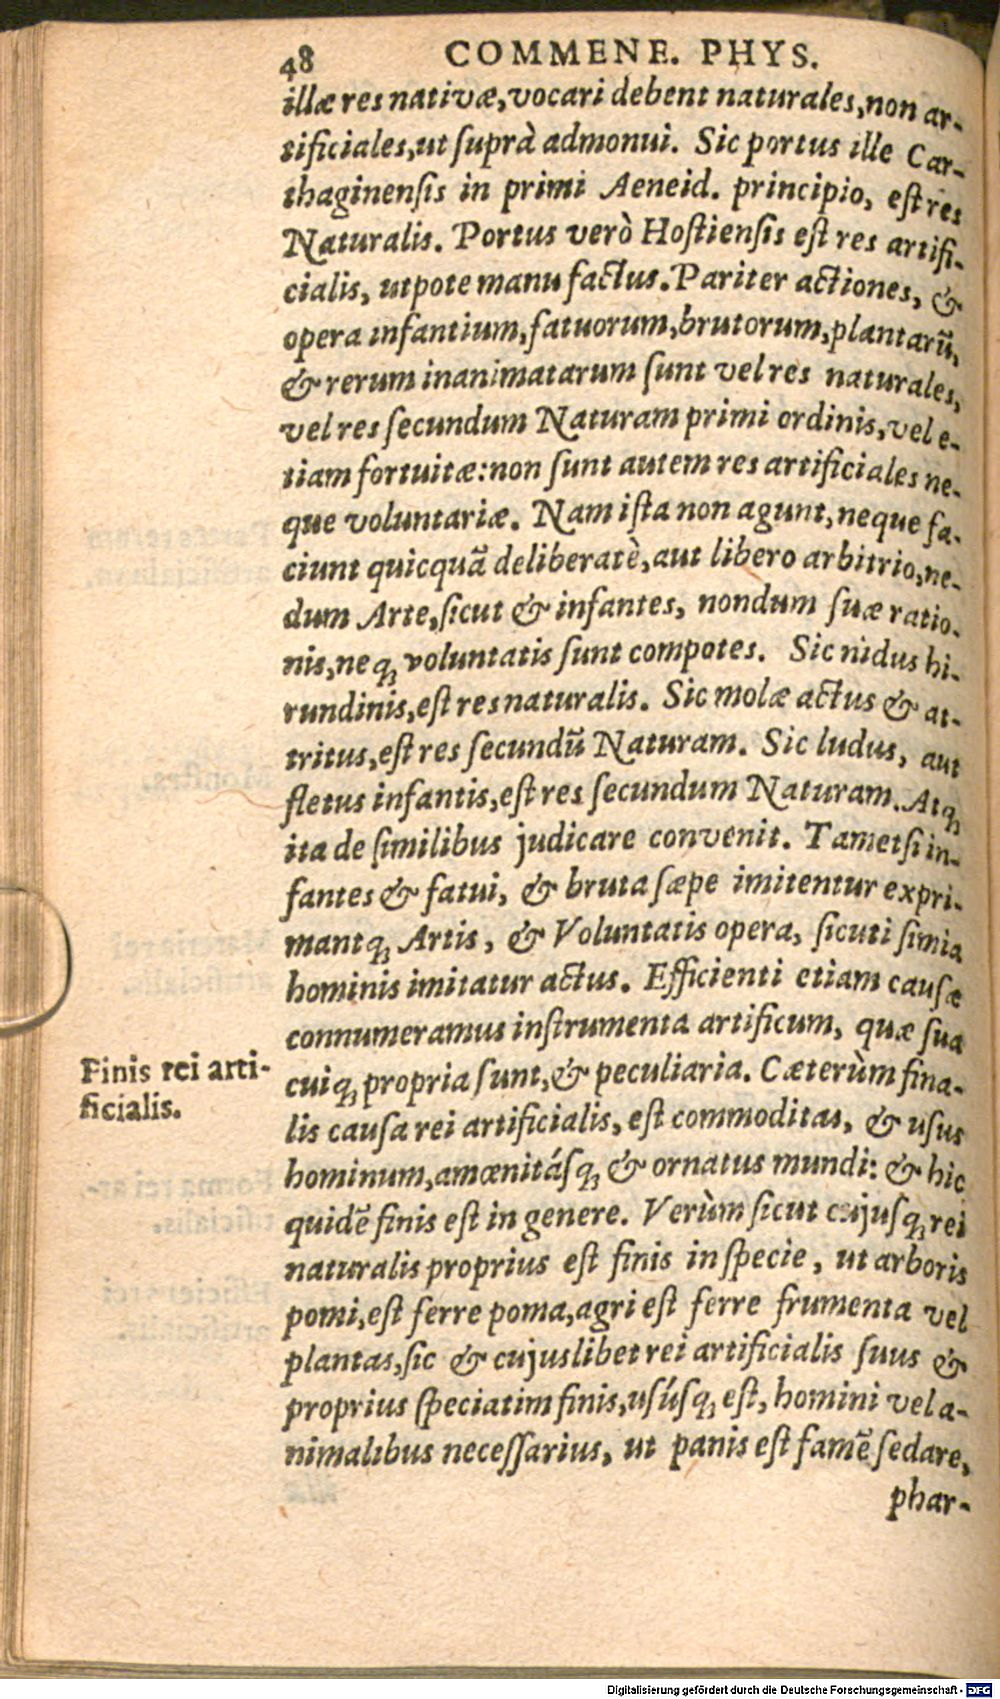 48 COMMENE. PHYS.
illæ res nativæ, vocari debent naturales, non ar-
tificiales, ut suprà admonui. Sic portus ille Car-
thaginensis in primi Aeneid. principio, est res
Naturalis. Portus verò Hostiensis est res artifi-
cialis, utpote manu factus. Pariter actiones, &
opera infantium, fatuorum, brutorum, plantarū,
& rerum inanimatarum sunt vel res naturales,
vel res secundum Naturam primi ordinis, vel e-
tiam fortuitæ: non sunt autem res artificiales ne-
que voluntariæ. Nam ista non agunt, neque fa-
ciunt quicquā deliberatè, aut libero arbitrio, ne-
dum Arte, sicut & infantes, nondum suæ ratio-
nis, neq; voluntatis sunt compotes. Sic nidus hi-
rundinis, est res naturalis. Sic molæ actus & at-
tritus, est res secundū Naturam. Sic ludus, aut
fletus infantis, est res secundum Naturam. Atq;
ita de similibus judicare convenit. Tametsi in-
fantes & fatui, & bruta sæpe imitentur expri-
mantq; Artis, & Voluntatis opera, sicuti simia
hominis imitatur actus. Efficienti etiam causæ
connumeramus instrumenta artificum, quæ sua
cuiq; propria sunt, & peculiaria. Cæterùm fina-
lis causa rei artificialis, est commoditas, & usus
hominum, amœnitásq; & ornatus mundi: & hic
quidē finis est in genere. Verùm sicut cujusq; rei
naturalis proprius est finis in specie, ut arboris
pomi, est ferre poma, agri est ferre frumenta vel
plantas, sic & cujuslibet rei artificialis suus &
proprius speciatim finis, usúsq; est, homini vel a-
nimalibus necessarius, ut panis est famē sedare,
phar-
Finis rei arti-
ficialis.
Digitalisierung gefördert durch die Deutsche Forschungsgemeinschaft - DFG